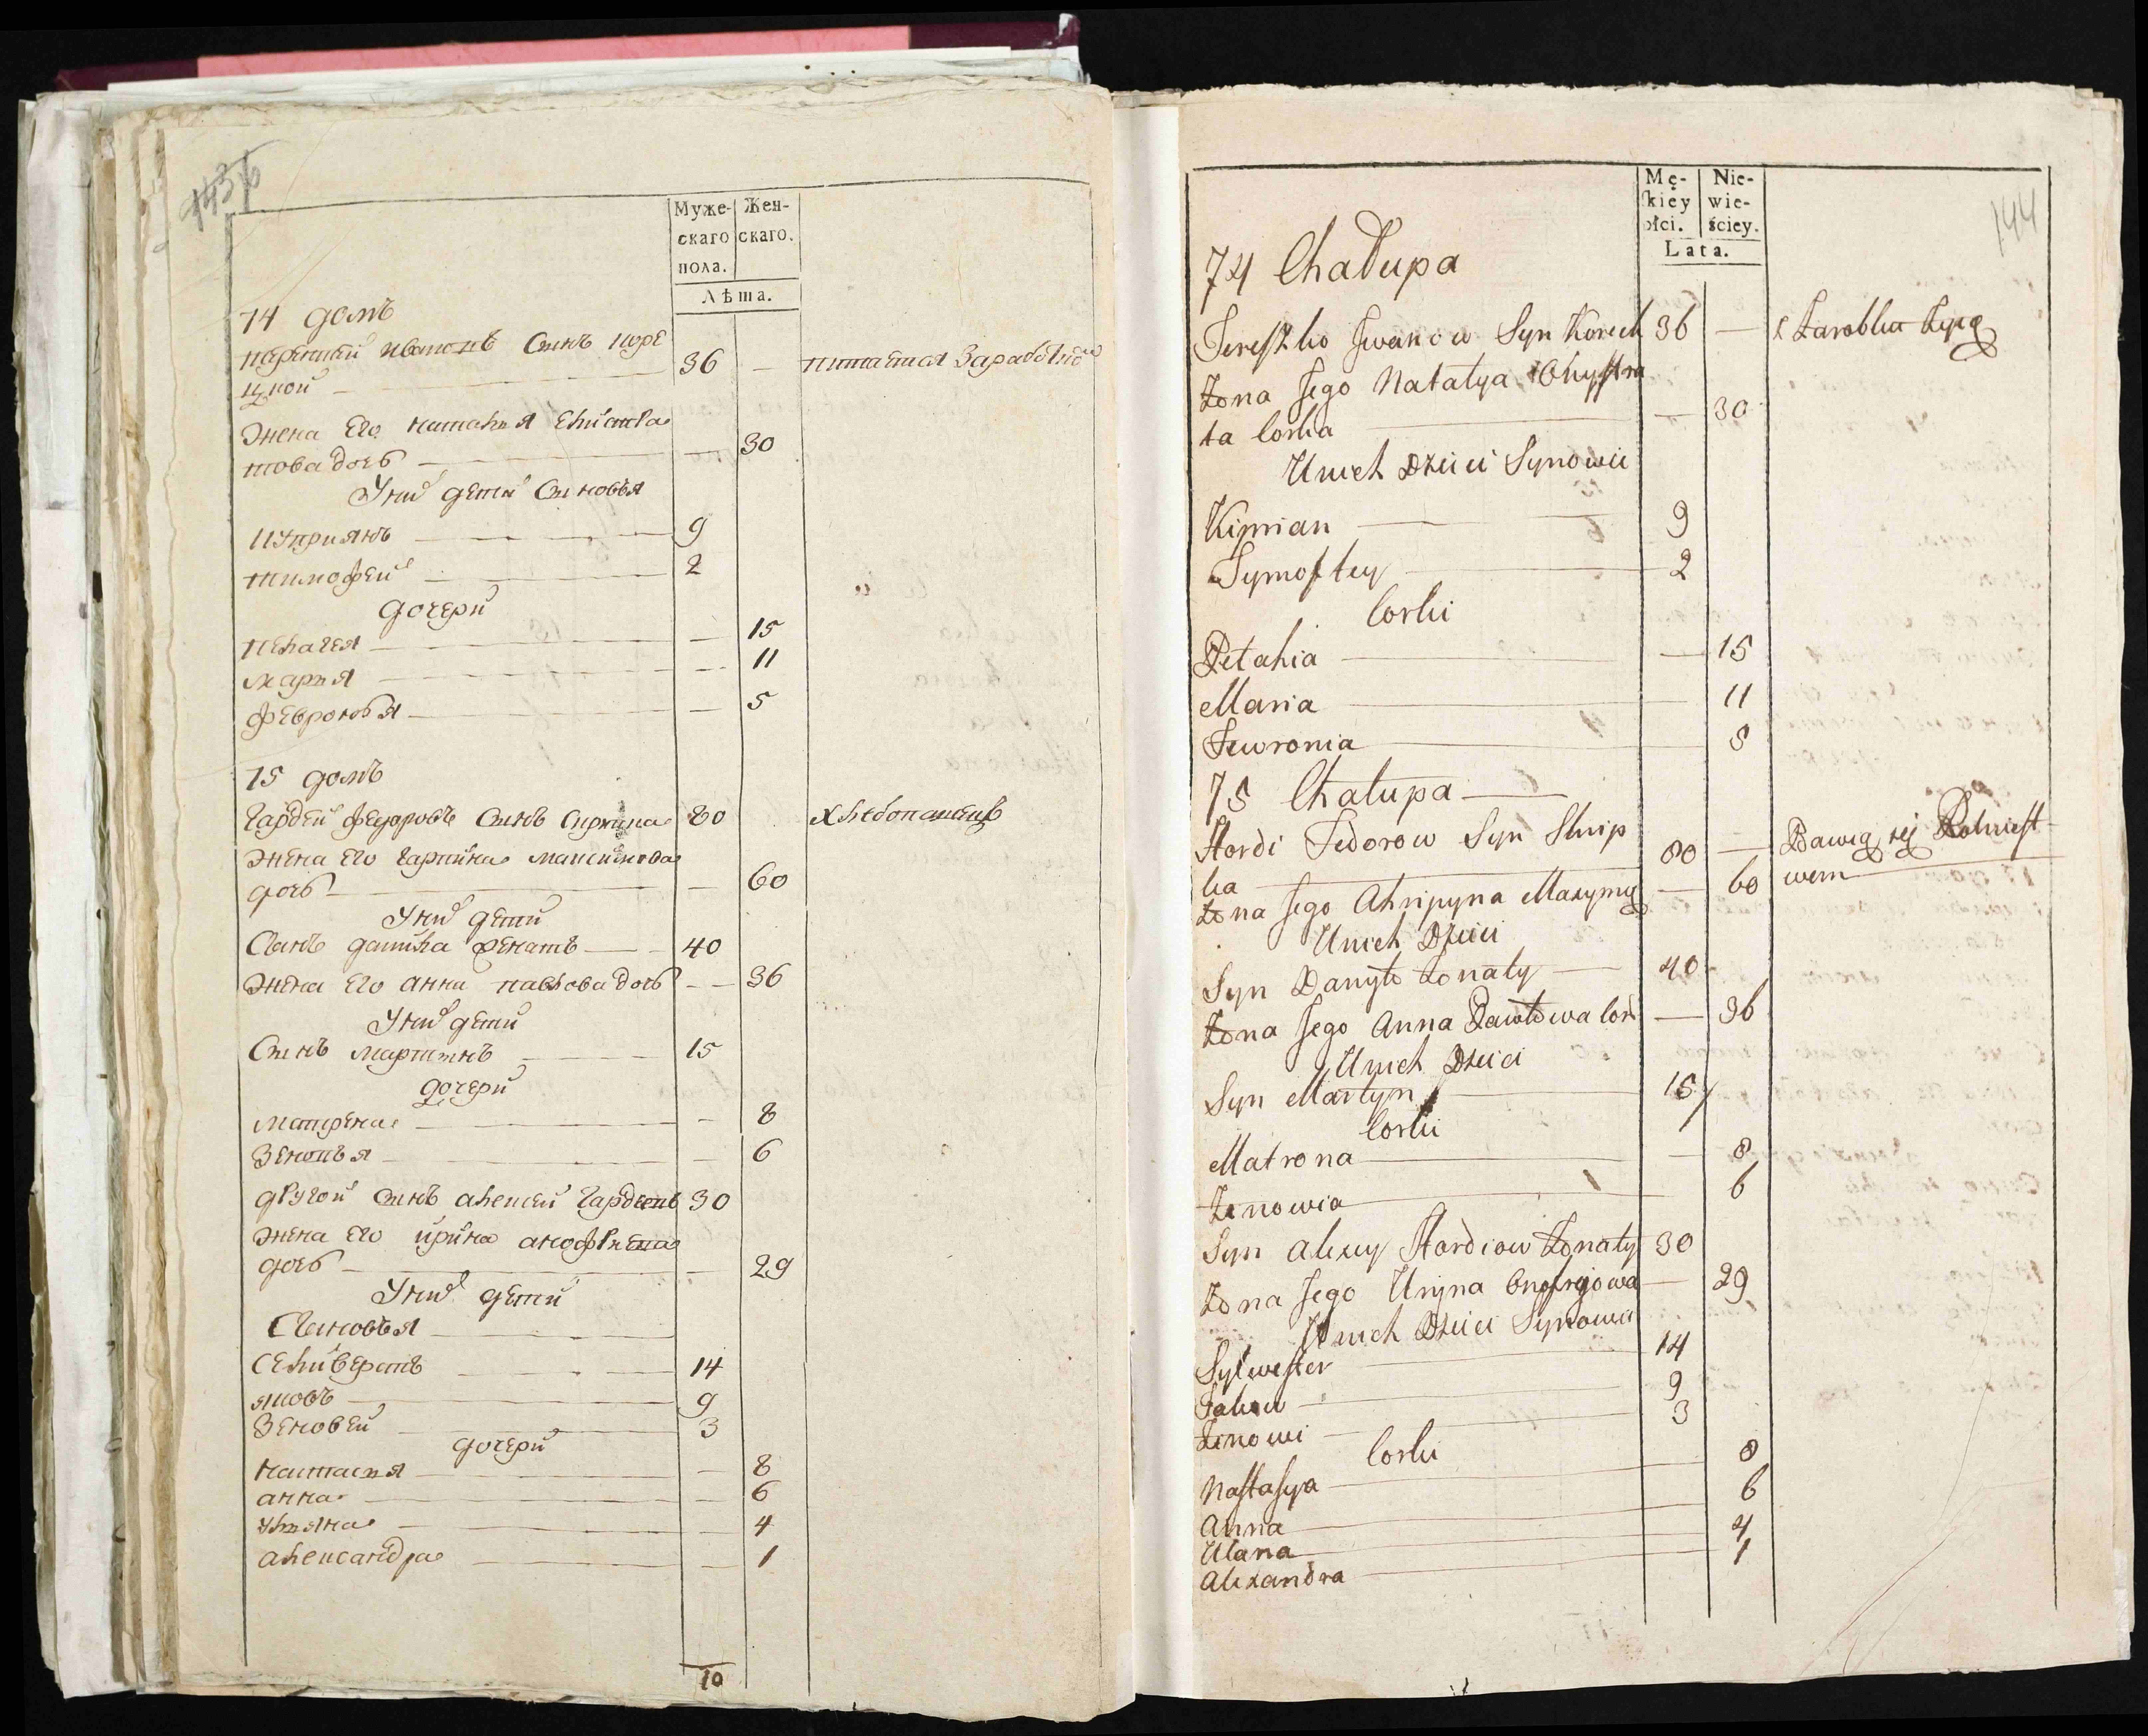 143б
Муже-
скаго
пола.
Жен-
скаго.
Лѣта.
74 домъ
терешей ивановъ синъ коре
цкой — 36 — питаетця Заработко
жена Его наталья Елистра
това дочь — 30
У них дети синовья
куприянъ — 9
тимофей — 2
дочери
пелагея — 15
марья — 11
февронья — 5
75 домъ
Гардей федоровъ синъ скрипка 80 хлебопашецъ
жена Его Гарпина максимова
дочь — 60
У них дети
Синъ данила женатъ — 40
жена Его анна павлова дочь — 36
У них дети
Синъ мартинъ — 15
дочери
матрена — 8
Зеновья — 6
другой синъ алексей Гардеевъ 30
жена Его ирина анофриева
дочь — 29
У них дети
Синовья —
селиверстъ — 14
яковъ — 9
Зеновей — 3
дочери
настасья — 8
анна — 6
ульяна — 4
александра — 1
10
144
Mę-
kiey
płci.
Nie-
wie-
ściey.
Lata.
74 Chałupa
Tereszko Jwanow Syn Korech 36 — z Zarobku żyią
żona Jego Natalya Chystra
ta Corka — 30
U nich Dzieci Synowie
Kiprian — 9
Tymoftey — 2
Corki
Pelahia — 15
Maria — 11
Fewronia — 5
75 Chałupa —
Hordi Fedorow Syn Skrip
ka — 80 — Bawią się Rolnict
żona Jego Ahripyna Maxymią — 60 wem
U nich Dzieci
Syn Danyło żonaty — 40
żona Jego Anna Pawłowa Cor — 36
U nich Dzieci
Syn Martyn — 15
Corki
Matrona — 8
Zenowia — 6
Syn Alexey Hordiow żonaty 30
żona Jego Uryna Onofryiowa — 29
U nich Dzieci Synowie
Sylwester — 14
Jakow — 9
Zenowi — 3
Corki
Nastasya — 8
Anna — 6
Ulana — 4
Alexandra — 1